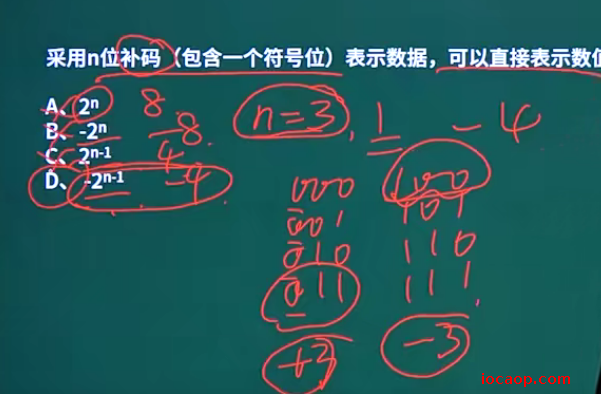 采用n位补码（包含一个符号位）表示数据，可以直接表示数值
A、2ⁿ 8 n=3, 1 -4
B、-2ⁿ -8
C、2ⁿ⁻¹ 4
D、-2ⁿ⁻¹ -4
000 100
001 101
010 110
011 111
+3 -3
locaop.com